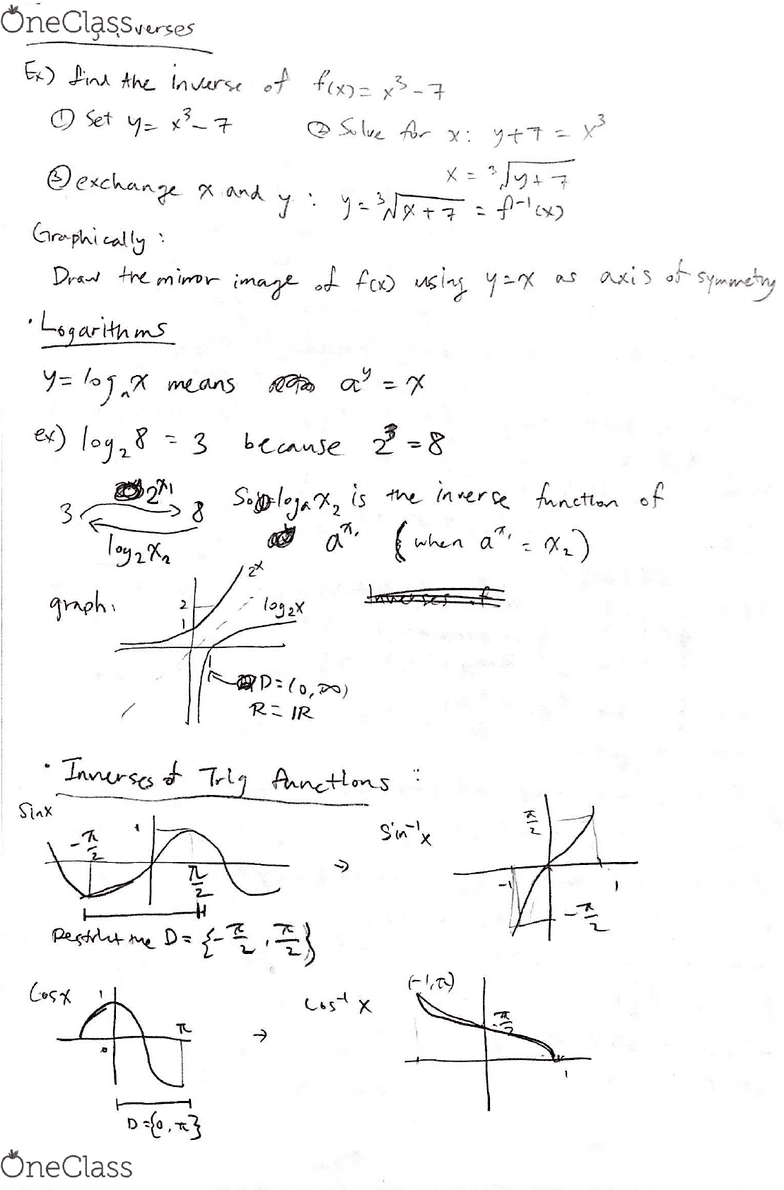 OneClass
verses
Ex) find the inverse of f(x) = x³ - 7
① Set y = x³ - 7 ② Solve for x: y + 7 = x³
x = ³√y + 7
③ exchange x and y : y = ³√x + 7 = f⁻¹(x)
Graphically :
Draw the mirror image of f(x) using y = x as axis of symmetry
· Logarithms
y = logₐx means aʸ = x
ex) log₂8 = 3 because 2³ = 8
3 2ˣ¹ 8 So logₐx₂ is the inverse function of
log₂x₂ aˣ¹ (when aˣ¹ = x₂)
graph: 2 1 2ˣ log₂x
1 D = (0, ∞)
R = ℝ
· Inverses of Trig functions :
Sinx -π/2 1 π/2 → Sin⁻¹x π/2 -1 1 -π/2
Restrict the D = {-π/2 , π/2}
Cosx 1 0 π → Cos⁻¹ x (-1,π) π/2 1
D = {0, π}
OneClass